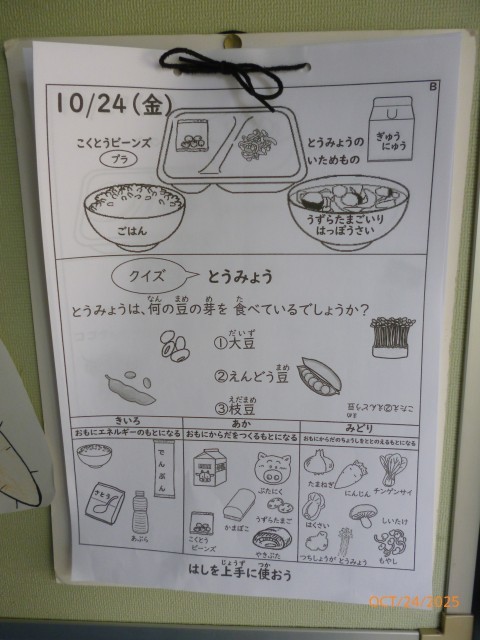 B
10/24(金)
こくとうビーンズ
プラ
とうみょうの
いためもの
ぎゅう
にゅう
ごはん
うずらたまごいり
はっぽうさい
クイズ
とうみょう
とうみょうは、何の豆の芽を食べているでしょうか?
なん まめ め た
①大豆
だいず
②えんどう豆
まめ
③枝豆
えだまめ
こたえ②えんどう豆
きいろ
おもにエネルギーのもとになる
あか
おもにからだをつくるもとになる
みどり
おもにからだのちょうしをととのえるもとになる
でんぷん
さとう
あぶら
ぶたにく
かまぼこ
うずらたまご
こくとう
ビーンズ
やきぶた
たまねぎ
にんじん
チンゲンサイ
はくさい
しいたけ
つちしょうが
とうみょう
もやし
はしを上手に使おう
じょうず つか
OCT/24/2025